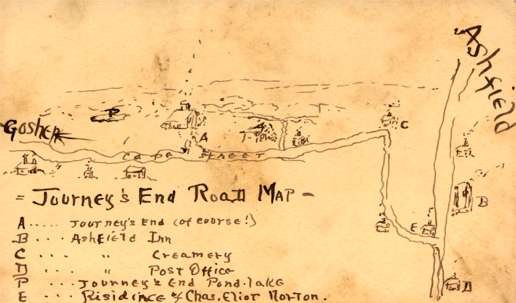 Ashfield
P
Goshen
A
C
CAPE STREET
E
B
D
= JOURNEY'S END ROAD MAP =
A..... JOURNEY'S END (of course!)
B ... Ashfield Inn
C ... " Creamery
D ... " Post Office
P ... Journey's End Pond-lake
E ... Risidence of Chas. Eliot Norton.